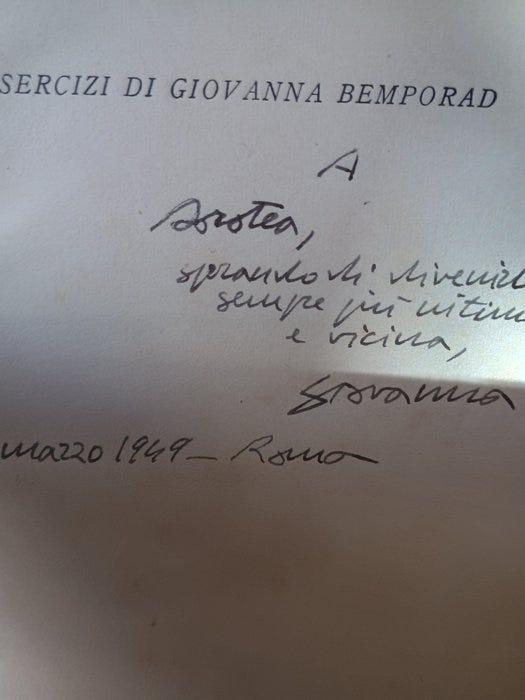 SERCIZI DI GIOVANNA BEMPORAD
A
Dorotea,
sperando di divenirl
sempre più intim
e vicina,
Giovanna
marzo 1949 – Roma